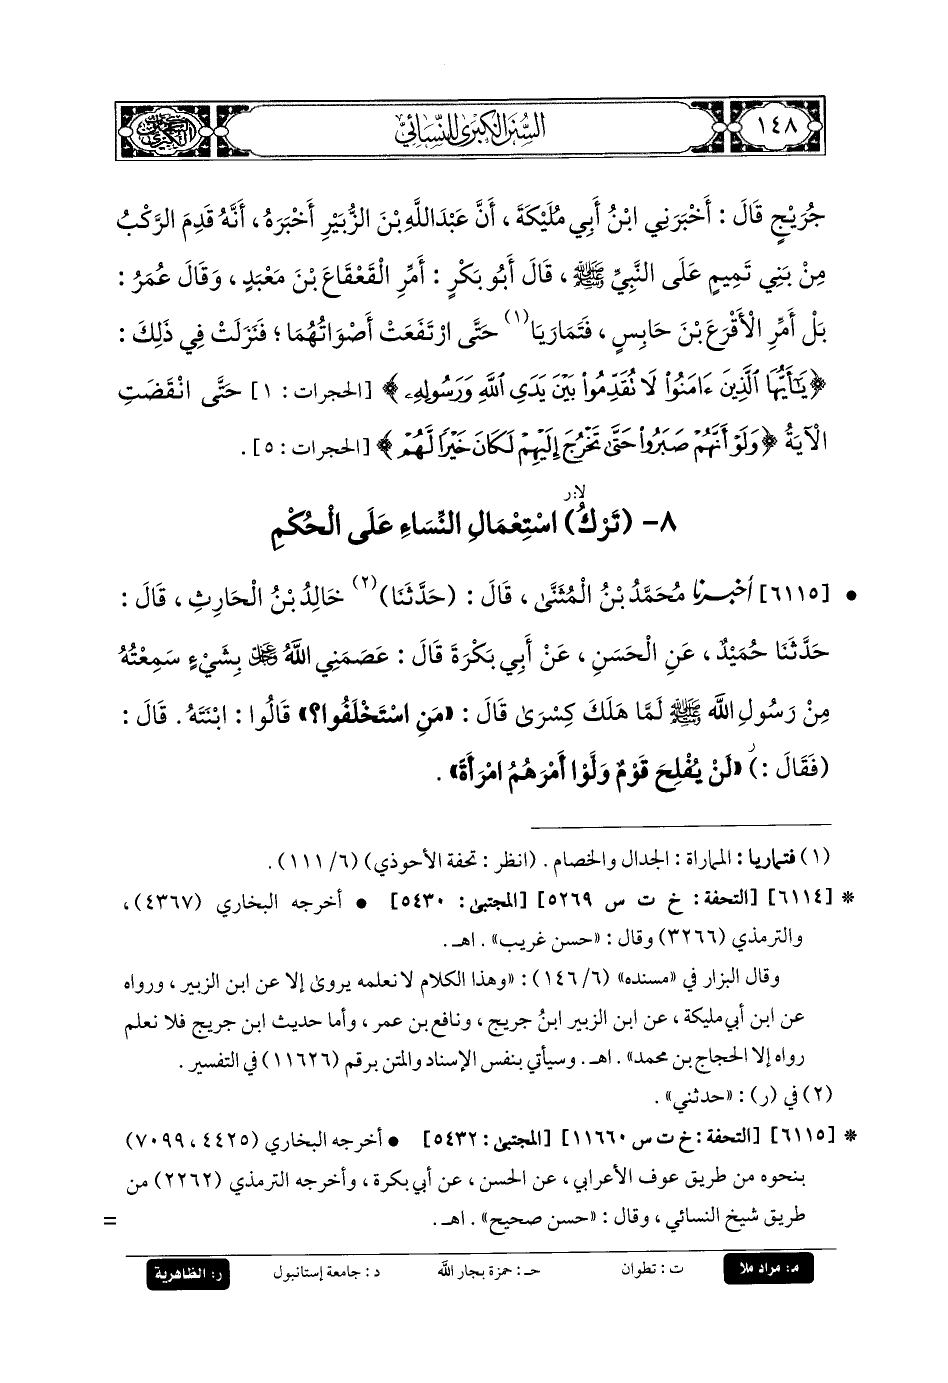 ١٤٨
السنن الكبرى للنسائي
جُرَيْجٍ قَالَ : أَخْبَرَنِي ابْنُ أَبِي مُلَيْكَةَ ، أَنَّ عَبْدَاللَّهِ بْنَ الزُّبَيْرِ أَخْبَرَهُ ، أَنَّهُ قَدِمَ الرَّكْبُ
مِنْ بَنِي تَمِيمٍ عَلَى النَّبِيِّ ﷺ ، قَالَ أَبُو بَكْرٍ : أَمِّرِ الْقَعْقَاعَ بْنَ مَعْبَدٍ ، وَقَالَ عُمَرُ :
بَلْ أَمِّرِ الْأَقْرَعَ بْنَ حَابِسٍ ، فَتَمَارَيَا(١) حَتَّى ارْتَفَعَتْ أَصْوَاتُهُمَا ؛ فَنَزَلَتْ فِي ذَلِكَ :
﴿يَٰٓأَيُّهَا ٱلَّذِينَ ءَامَنُوا۟ لَا تُقَدِّمُوا۟ بَيْنَ يَدَىِ ٱللَّهِ وَرَسُولِهِۦ﴾ [الحجرات : ١] حَتَّى انْقَضَتِ
الْآيَةُ ﴿وَلَوْ أَنَّهُمْ صَبَرُوا۟ حَتَّىٰ تَخْرُجَ إِلَيْهِمْ لَكَانَ خَيْرًا لَّهُمْ﴾ [الحجرات : ٥] .
٨- (تَرْكُ) اسْتِعْمَالِ النِّسَاءِ عَلَى الْحُكْمِ
• [٦١١٥] أخبرنا مُحَمَّدُ بْنُ الْمُثَنَّى ، قَالَ : (حَدَّثَنَا)(٢) خَالِدُ بْنُ الْحَارِثِ ، قَالَ :
حَدَّثَنَا حُمَيْدٌ ، عَنِ الْحَسَنِ ، عَنْ أَبِي بَكْرَةَ قَالَ : عَصَمَنِي اللَّهُ ﷿ بِشَيْءٍ سَمِعْتُهُ
مِنْ رَسُولِ اللَّه ﷺ لَمَّا هَلَكَ كِسْرَى قَالَ : «مَنِ اسْتَخْلَفُوا؟» قَالُوا : ابْنَتَهُ . قَالَ :
(فَقَالَ :) «لَنْ يُفْلِحَ قَوْمٌ وَلَّوْا أَمْرَهُمُ امْرَأَةً» .
(١) فتماريا : المماراة : الجدال والخصام . (انظر : تحفة الأحوذي) (٦/ ١١١) .
* [٦١١٤] [التحفة : خ ت س ٥٢٦٩] [المجتبى : ٥٤٣٠] • أخرجه البخاري (٤٣٦٧) ،
والترمذي (٣٢٦٦) وقال : «حسن غريب» . اهـ .
وقال البزار في «مسنده» (٦/ ١٤٦) : «وهذا الكلام لا نعلمه يروى إلا عن ابن الزبير ، ورواه
عن ابن أبي مليكة ، عن ابن الزبير ابنُ جريج ، ونافع بن عمر ، وأما حديث ابن جريج فلا نعلم
رواه إلا الحجاج بن محمد» . اهـ . وسيأتي بنفس الإسناد والمتن برقم (١١٦٢٦) في التفسير .
(٢) في (ر) : «حدثني» .
* [٦١١٥] [التحفة : خ ت س ١١٦٦٠] [المجتبى : ٥٤٣٢] • أخرجه البخاري (٤٤٢٥ ، ٧٠٩٩)
بنحوه من طريق عوف الأعرابي ، عن الحسن ، عن أبي بكرة ، وأخرجه الترمذي (٢٢٦٢) من
طريق شيخ النسائي ، وقال : «حسن صحيح» . اهـ . =
م: مراد ملا ت : تطوان حـ : حمزة بجار الله د : جامعة إستانبول ر: الظاهرية